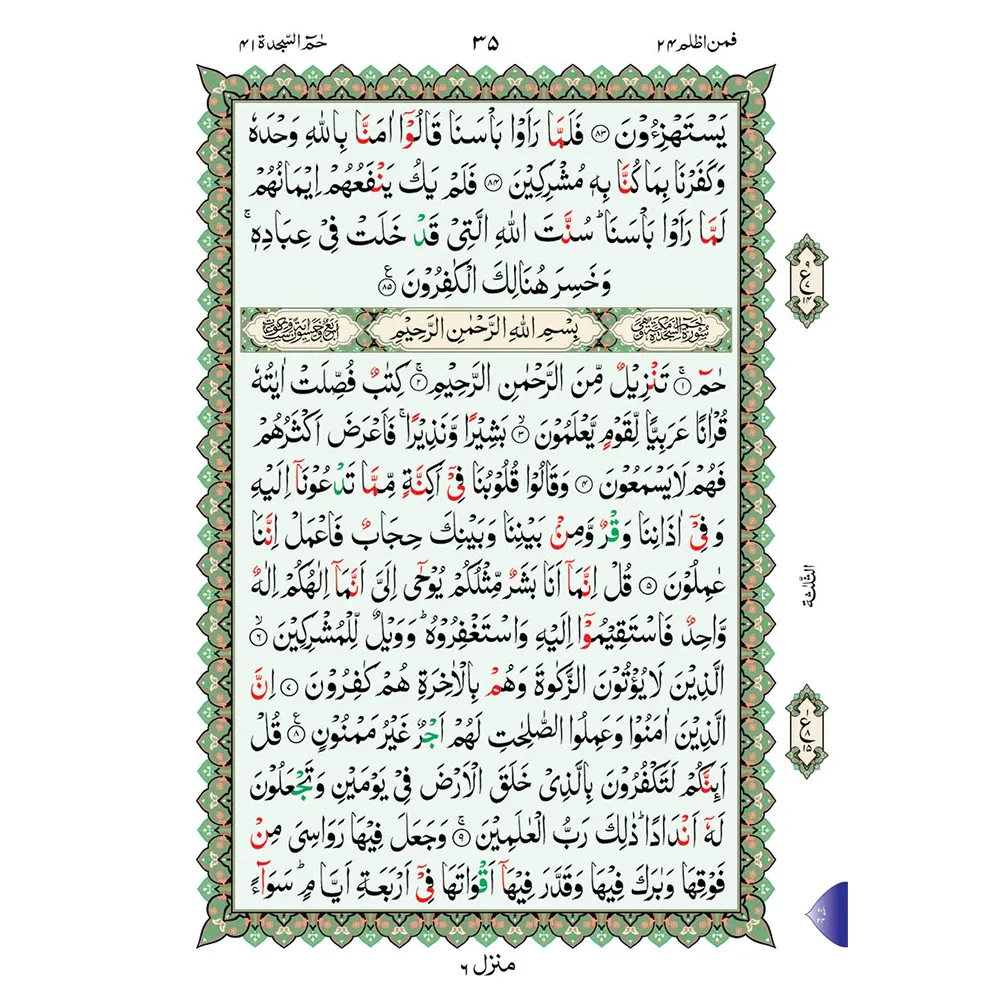 فمن اظلم ۲۴
۳۵
حٰمٓ السّجدة ۴۱
يَسْتَهْزِءُوْنَ ۸۳ فَلَمَّا رَاَوْا بَاْسَنَا قَالُوْٓا اٰمَنَّا بِاللّٰهِ وَحْدَهٗ
وَكَفَرْنَا بِمَا كُنَّا بِهٖ مُشْرِكِيْنَ ۸۴ فَلَمْ يَكُ يَنْفَعُهُمْ اِيْمَانُهُمْ
لَمَّا رَاَوْا بَاْسَنَا ؕ سُنَّتَ اللّٰهِ الَّتِيْ قَدْ خَلَتْ فِيْ عِبَادِهٖ ۚ
وَخَسِرَ هُنَالِكَ الْكٰفِرُوْنَ ۸۵ ع
بِسْمِ اللّٰهِ الرَّحْمٰنِ الرَّحِيْمِ
حٰمٓ ۱ۚ تَنْزِيْلٌ مِّنَ الرَّحْمٰنِ الرَّحِيْمِ ۲ۚ كِتٰبٌ فُصِّلَتْ اٰيٰتُهٗ
قُرْاٰنًا عَرَبِيًّا لِّقَوْمٍ يَّعْلَمُوْنَ ۳ۙ بَشِيْرًا وَّنَذِيْرًا ۚ فَاَعْرَضَ اَكْثَرُهُمْ
فَهُمْ لَا يَسْمَعُوْنَ ۴ وَقَالُوْا قُلُوْبُنَا فِيْٓ اَكِنَّةٍ مِّمَّا تَدْعُوْنَآ اِلَيْهِ
وَفِيْٓ اٰذَانِنَا وَقْرٌ وَّمِنْۢ بَيْنِنَا وَبَيْنِكَ حِجَابٌ فَاعْمَلْ اِنَّنَا
عٰمِلُوْنَ ۵ قُلْ اِنَّمَآ اَنَا بَشَرٌ مِّثْلُكُمْ يُوْحٰٓى اِلَيَّ اَنَّمَآ اِلٰهُكُمْ اِلٰهٌ
وَّاحِدٌ فَاسْتَقِيْمُوْٓا اِلَيْهِ وَاسْتَغْفِرُوْهُ ؕ وَوَيْلٌ لِّلْمُشْرِكِيْنَ ۶ۙ
الَّذِيْنَ لَا يُؤْتُوْنَ الزَّكٰوةَ وَهُمْ بِالْاٰخِرَةِ هُمْ كٰفِرُوْنَ ۷ اِنَّ
الَّذِيْنَ اٰمَنُوْا وَعَمِلُوا الصّٰلِحٰتِ لَهُمْ اَجْرٌ غَيْرُ مَمْنُوْنٍ ۸ ع قُلْ
اَئِنَّكُمْ لَتَكْفُرُوْنَ بِالَّذِيْ خَلَقَ الْاَرْضَ فِيْ يَوْمَيْنِ وَتَجْعَلُوْنَ
لَهٗٓ اَنْدَادًا ؕ ذٰلِكَ رَبُّ الْعٰلَمِيْنَ ۹ۚ وَجَعَلَ فِيْهَا رَوَاسِيَ مِنْ
فَوْقِهَا وَبٰرَكَ فِيْهَا وَقَدَّرَ فِيْهَآ اَقْوَاتَهَا فِيْٓ اَرْبَعَةِ اَيَّامٍ ؕ سَوَآءً
منزل ۶
۹ ع ۱۴
الثلثة
۱ ع ۸ ۱۵